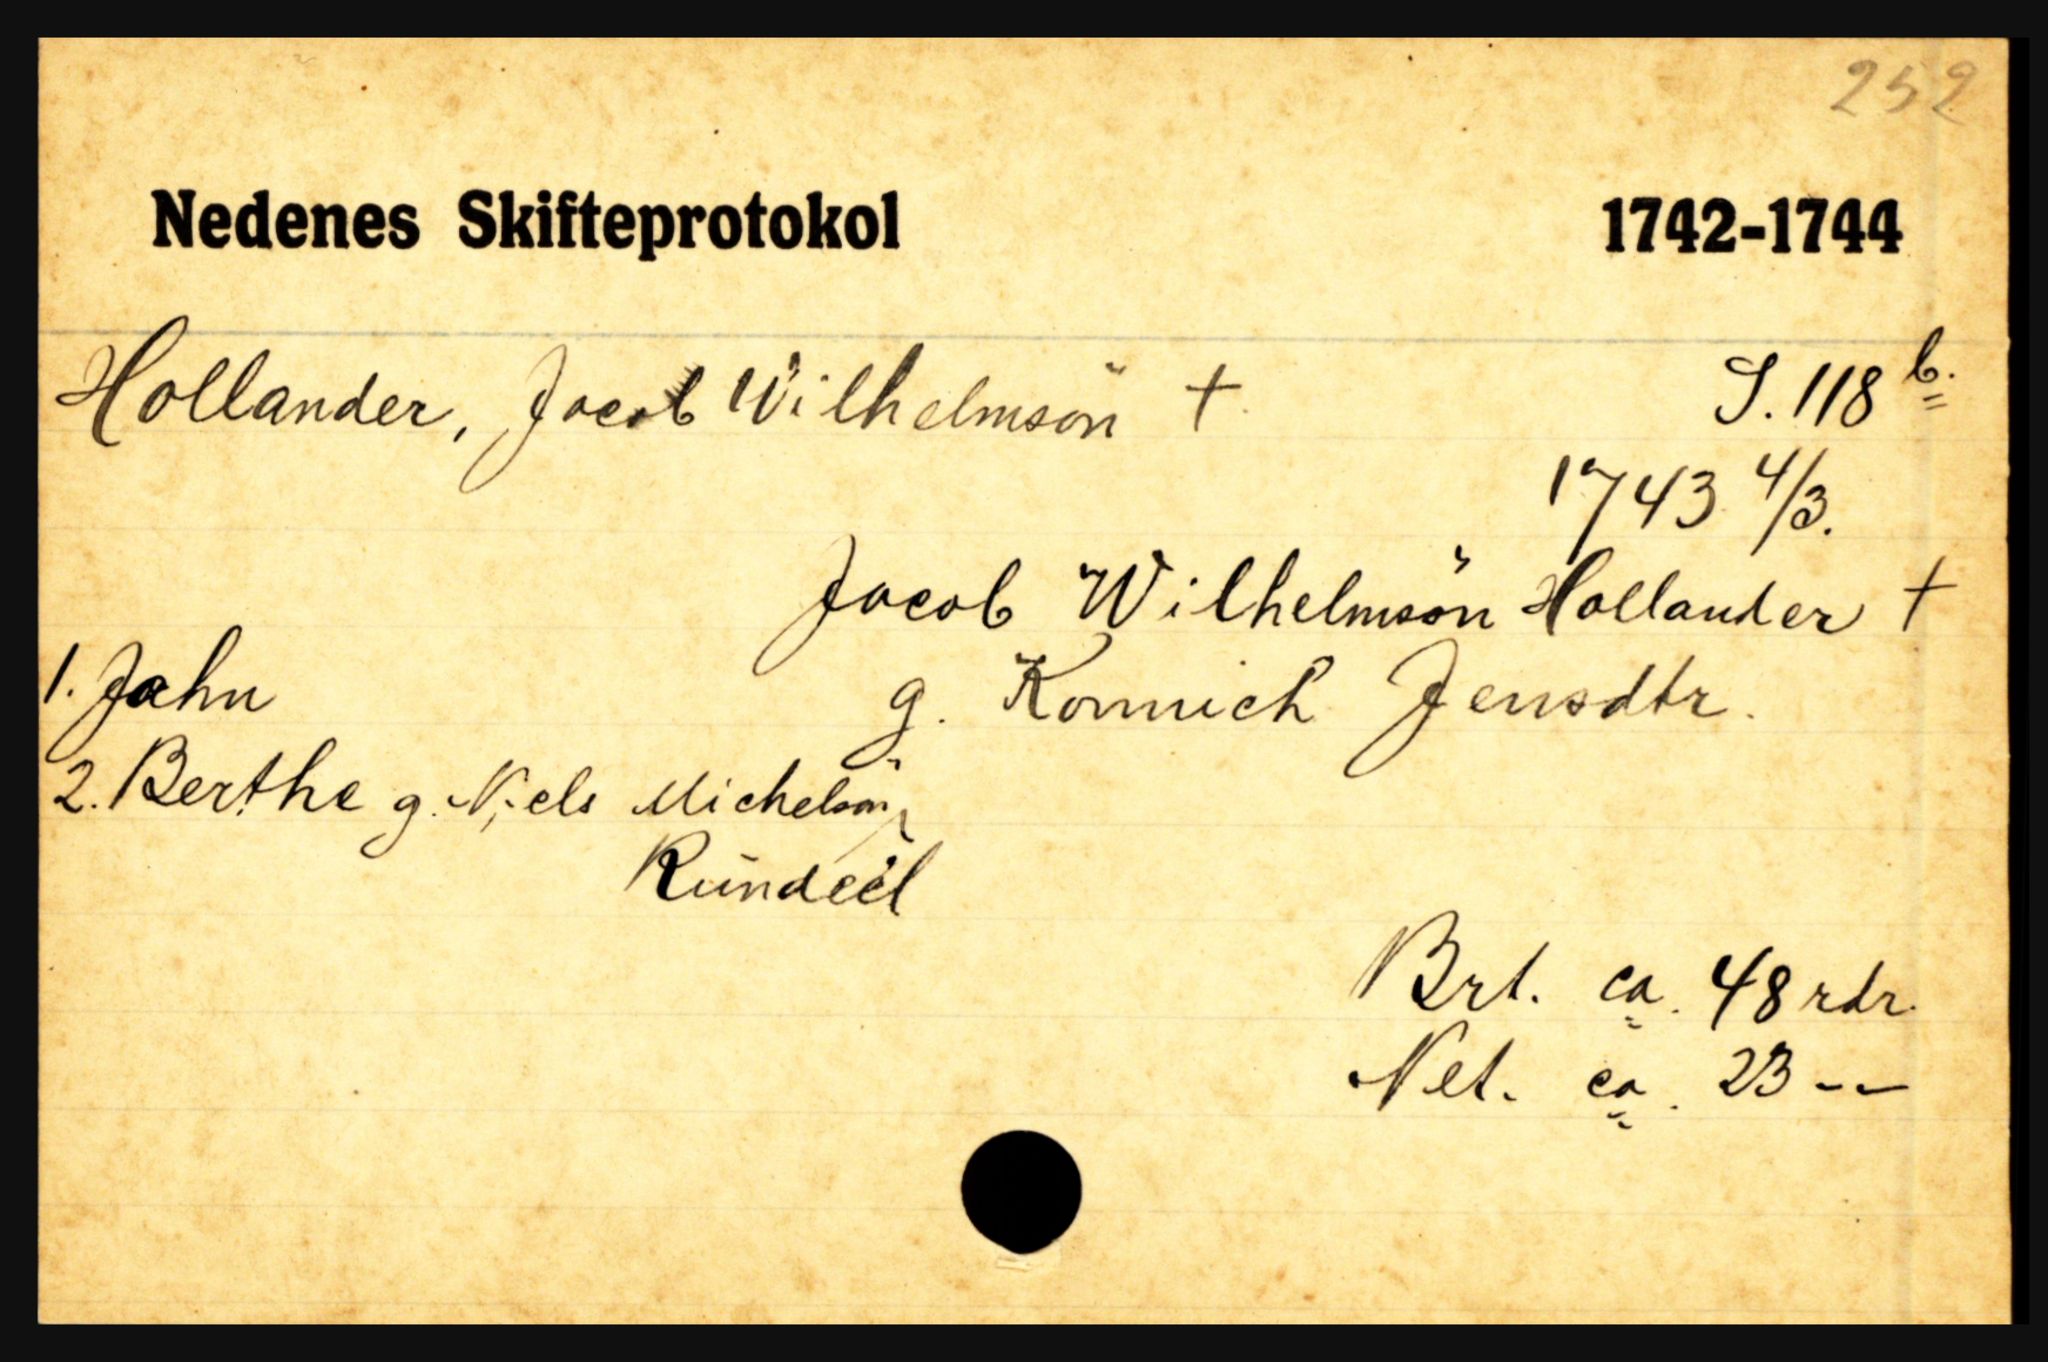 252
Nedenes Skifteprotokol 1742-1744
Hollander, Jacob Wilhelmsön † S. 118 b.
1743 4/3.
Jacob Wilhelmsön Hollander †
1. Jahn g. Konnich Jensdtr.
2. Berthe g. Niels Michelsön
Rŭndeel
Brt. ca. 48 rdr.
Net. ca. 23 --